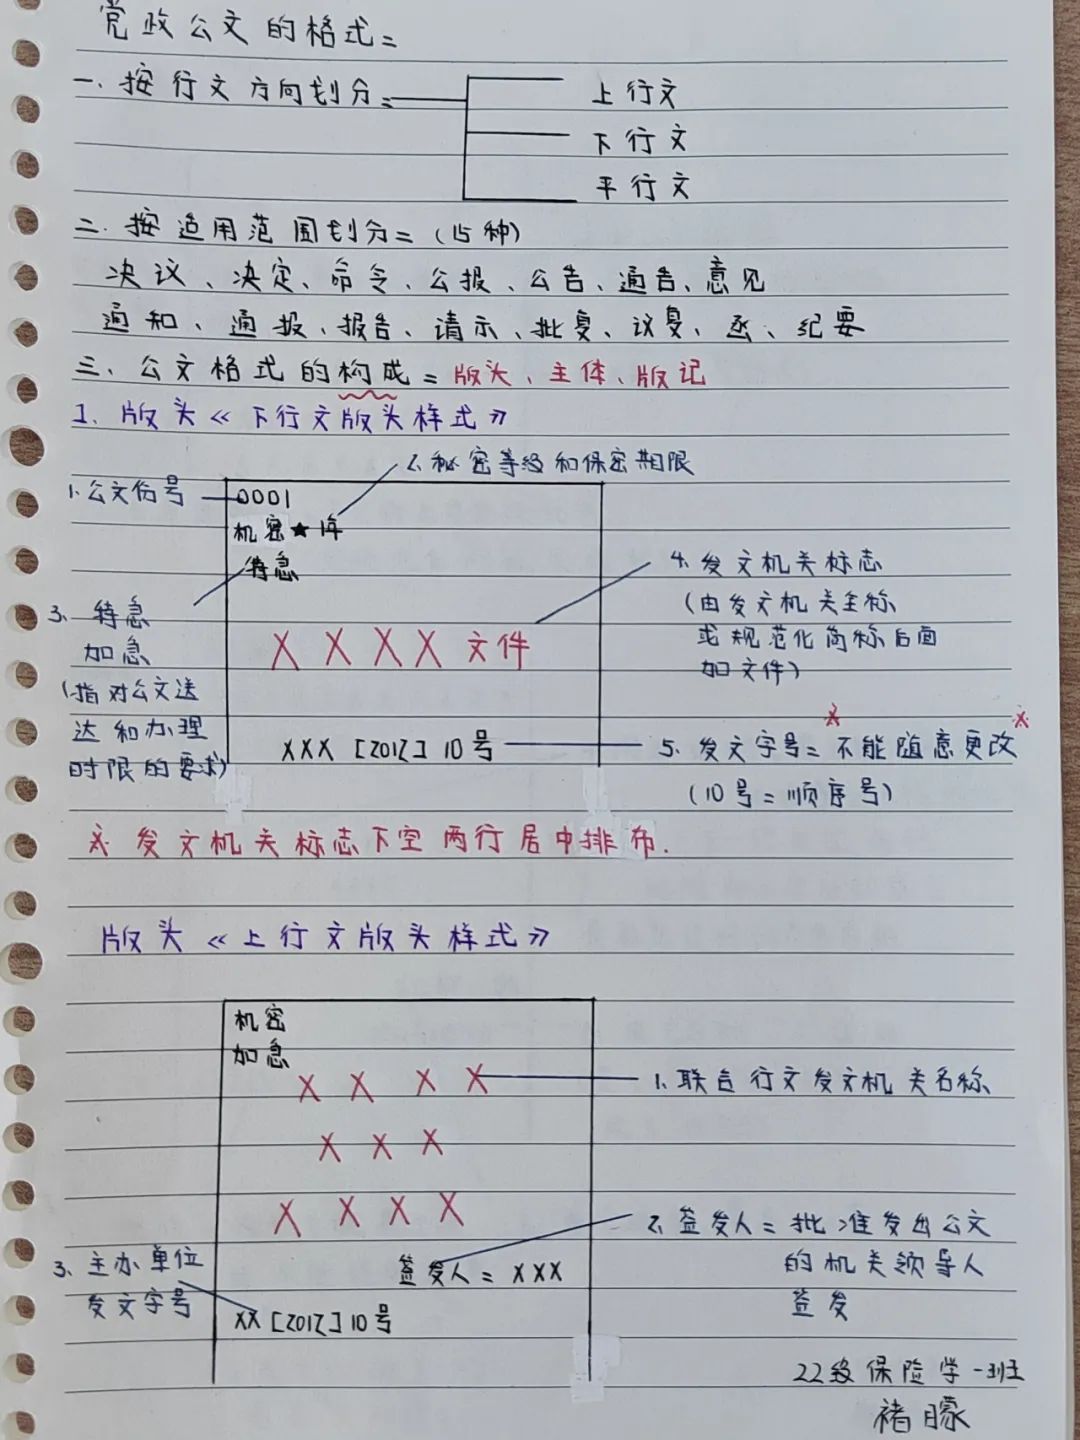 党政公文的格式=
一.按行文方向划分=
上行文
下行文
平行文
二.按适用范围划分=(15种)
决议、决定、命令、公报、公告、通告、意见
通知、通报、报告、请示、批复、议复、函、纪要
三、公文格式的构成=版头、主体、版记
1.版头《下行文版头样式》
2.秘密等级和保密期限
1.公文份号
0001
机密★1年
特急
3.特急
加急
(指对公文送
达和办理
时限的要求)
4.发文机关标志
(由发文机关全称
或规范化简称后面
加文件)
XXXX文件
XXX[2012]10号
5.发文字号=不能随意更改
(10号=顺序号)
发文机关标志下空两行居中排布.
版头《上行文版头样式》
机密
加急
XXXX
1.联合行文发文机关名称
XXX
XXXX
2.签发人=批准发出公文
的机关领导人
签发
签发人=XXX
3.主办单位
发文字号
XX[2012]10号
22级保险学一班
褚朦